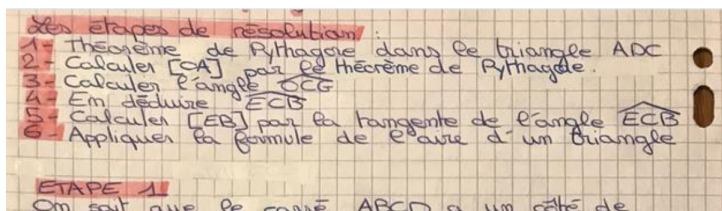 Les étapes de résolution :
1- Théorème de Pythagore dans le triangle ADC
2- Calculer [OA] par le théorème de Pythagore.
3- Calculer l'angle OCG
4- En déduire ECB
5- Calculer [EB] par la tangente de l'angle ECB
6- Appliquer la formule de l'aire d'un triangle
ETAPE 1
On sait que le carré ABCD a un côté de